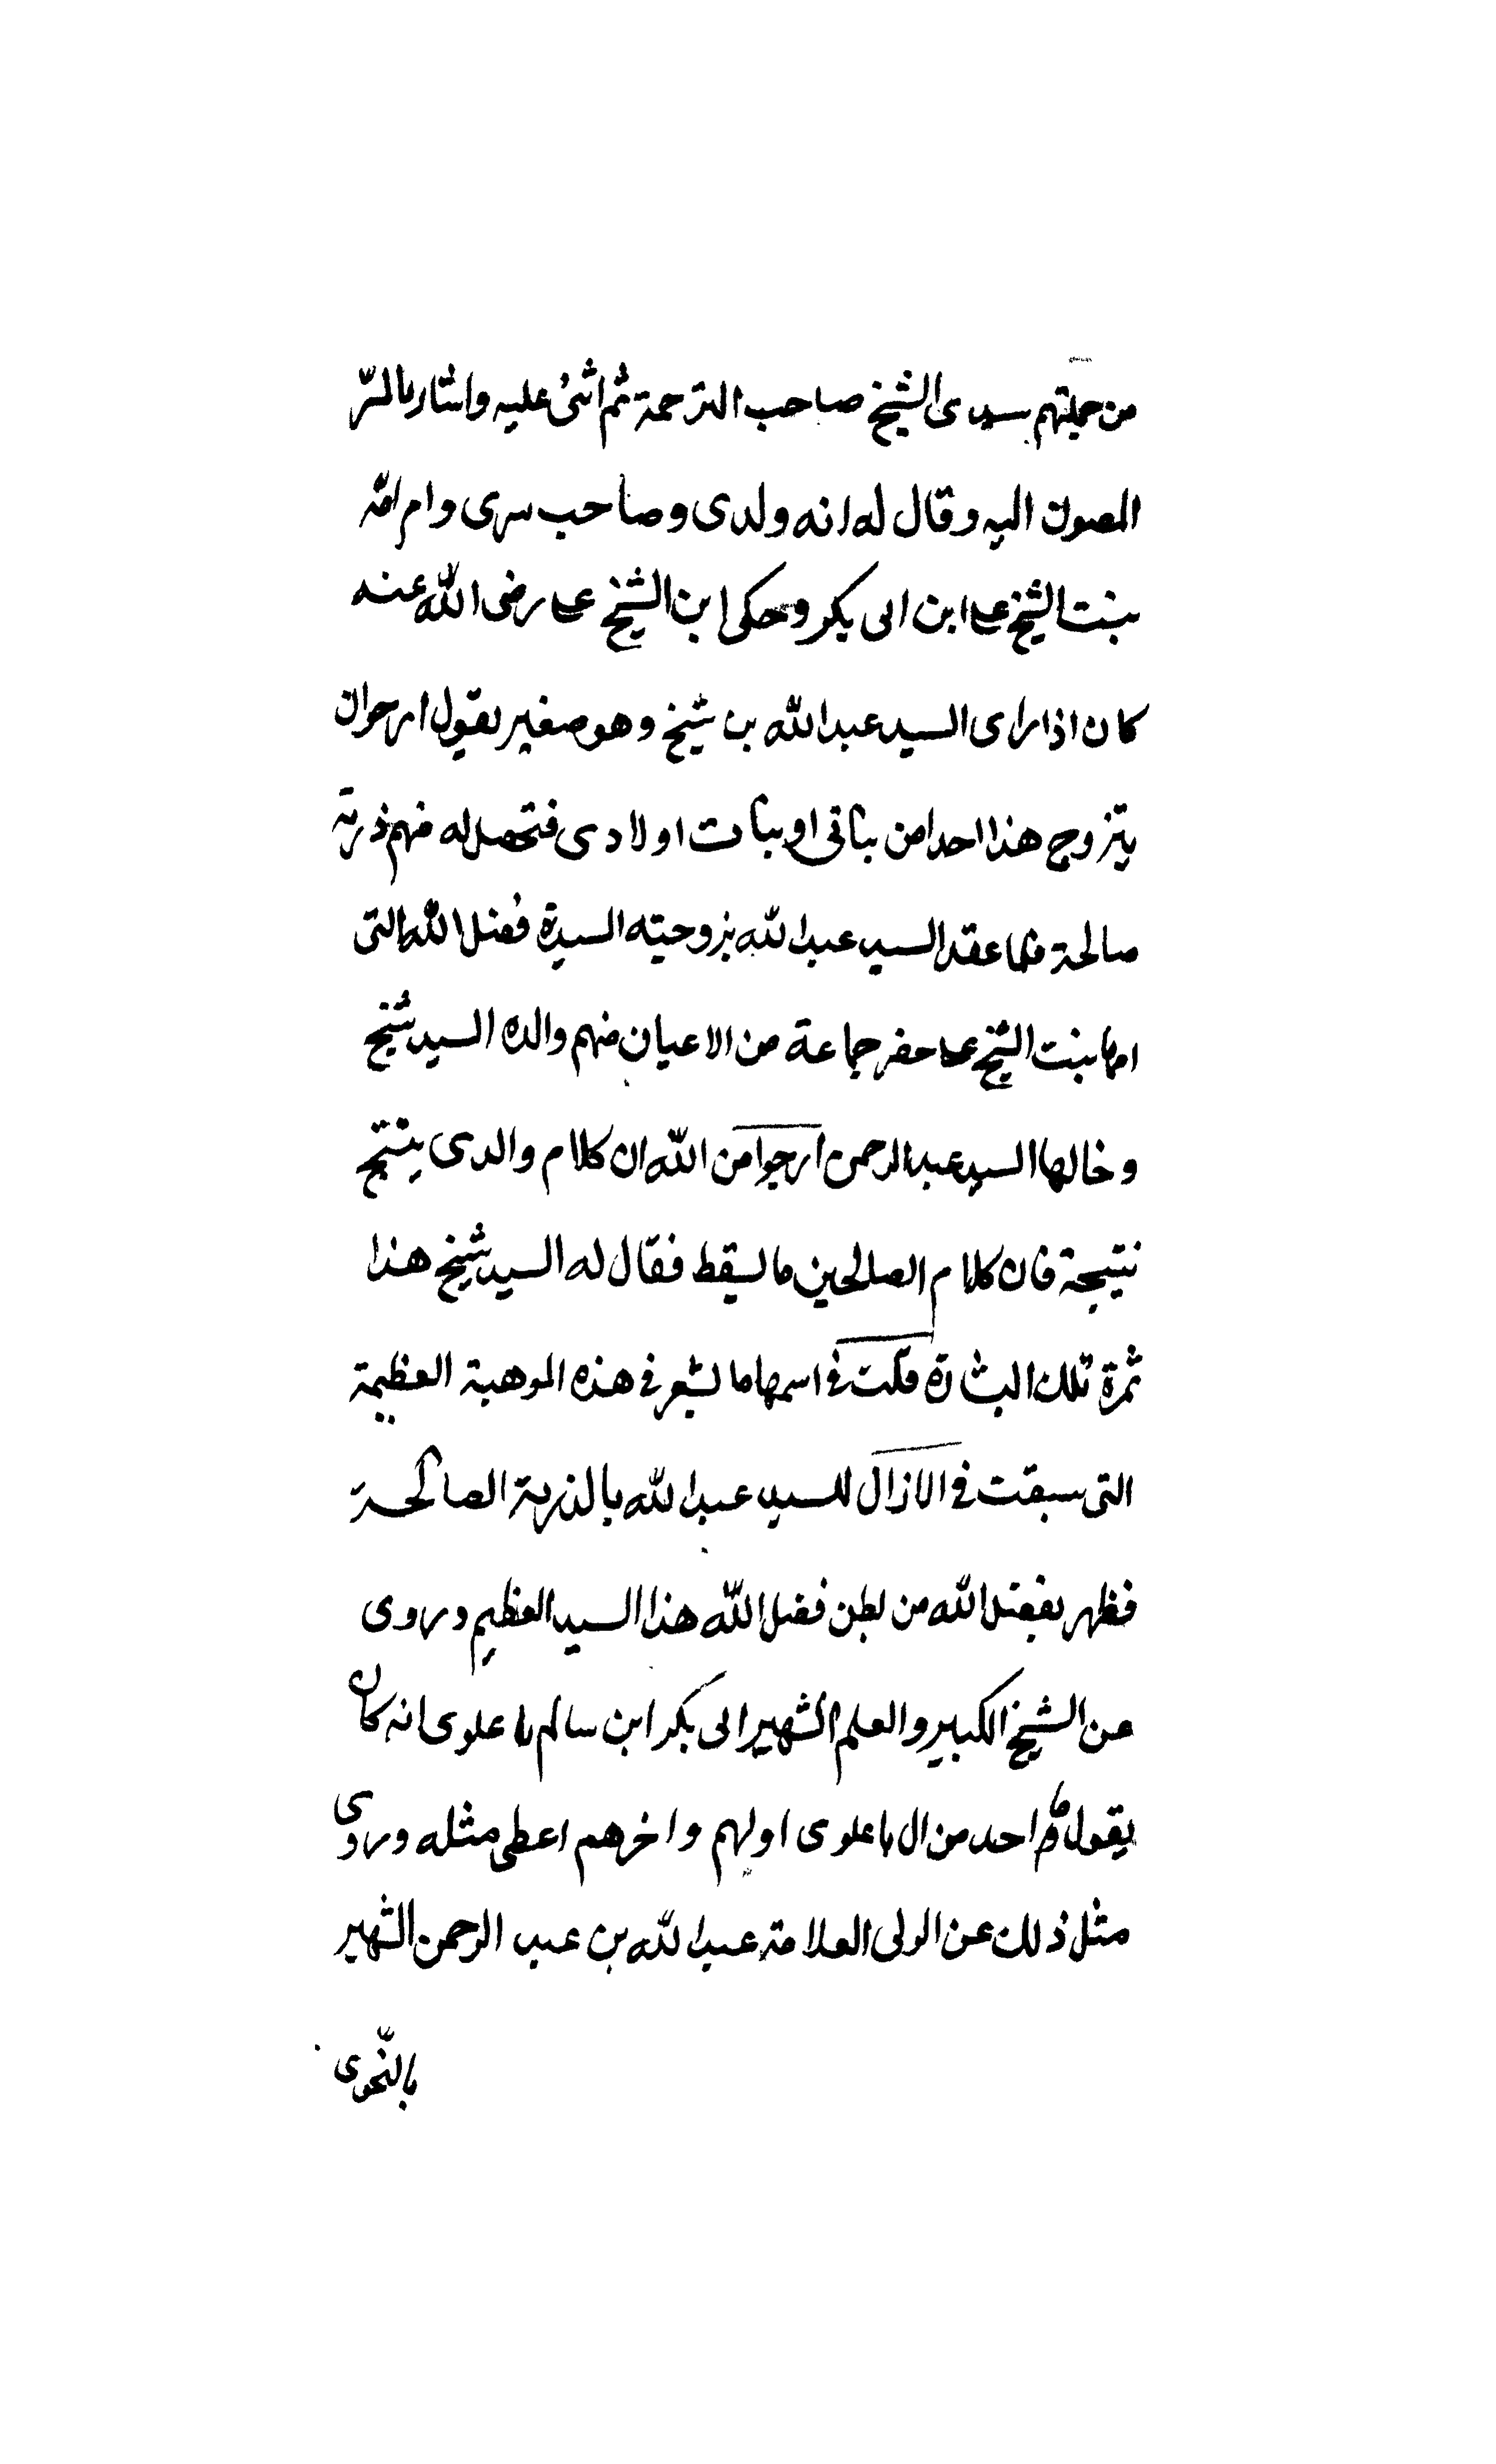 من جملتهم سيدى الشيخ صاحب الترجمة ثم اثنى عليه واشار بالسّر
المصون اليه وقال له انه ولدى وصاحب سرى وامرامّه
بنت الشيخ على ابن ابى بكر وحكى ابن الشيخ على رضى الله عنه
كان اذا راى السيد عبدالله بن شيخ وهو صغير يقول ارجوان
يتزوج هذا احدا من بناتى او بنات اولادى فتحصل له منهم ذرية
صالحة فلما عقد السيد عبدالله بزوجيته السيدة فضل الله التى
امها بنت الشيخ على حضر جماعة من الاعيان منهم والده السيد شيخ
وخالها السيد عبدالرحمن ارجوا من الله ان كلام والدى ينتج
نتيجة فان كلام الصالحين ما يسقط فقال له السيد شيخ هذا
ثمرة تلك البشارة قلت فى اسمها ما يشعر فى هذه الموهبة العظيمة
التى سبقت فى الازال للسيد عبدالله بالذرية الصالحة
فظهر بفضل الله من بطن فضل الله هذا السيد العظيم وروى
عن الشيخ الكبير والعلم الشهير ابى بكر ابن سالم با علوى انه كان
يقول ما احد من ال با علوى اولهم واخرهم اعطى مثله وروى
مثل ذلك عن الولى العلامة عبدالله بن عبد الرحمن الشهير
بالنّحوى